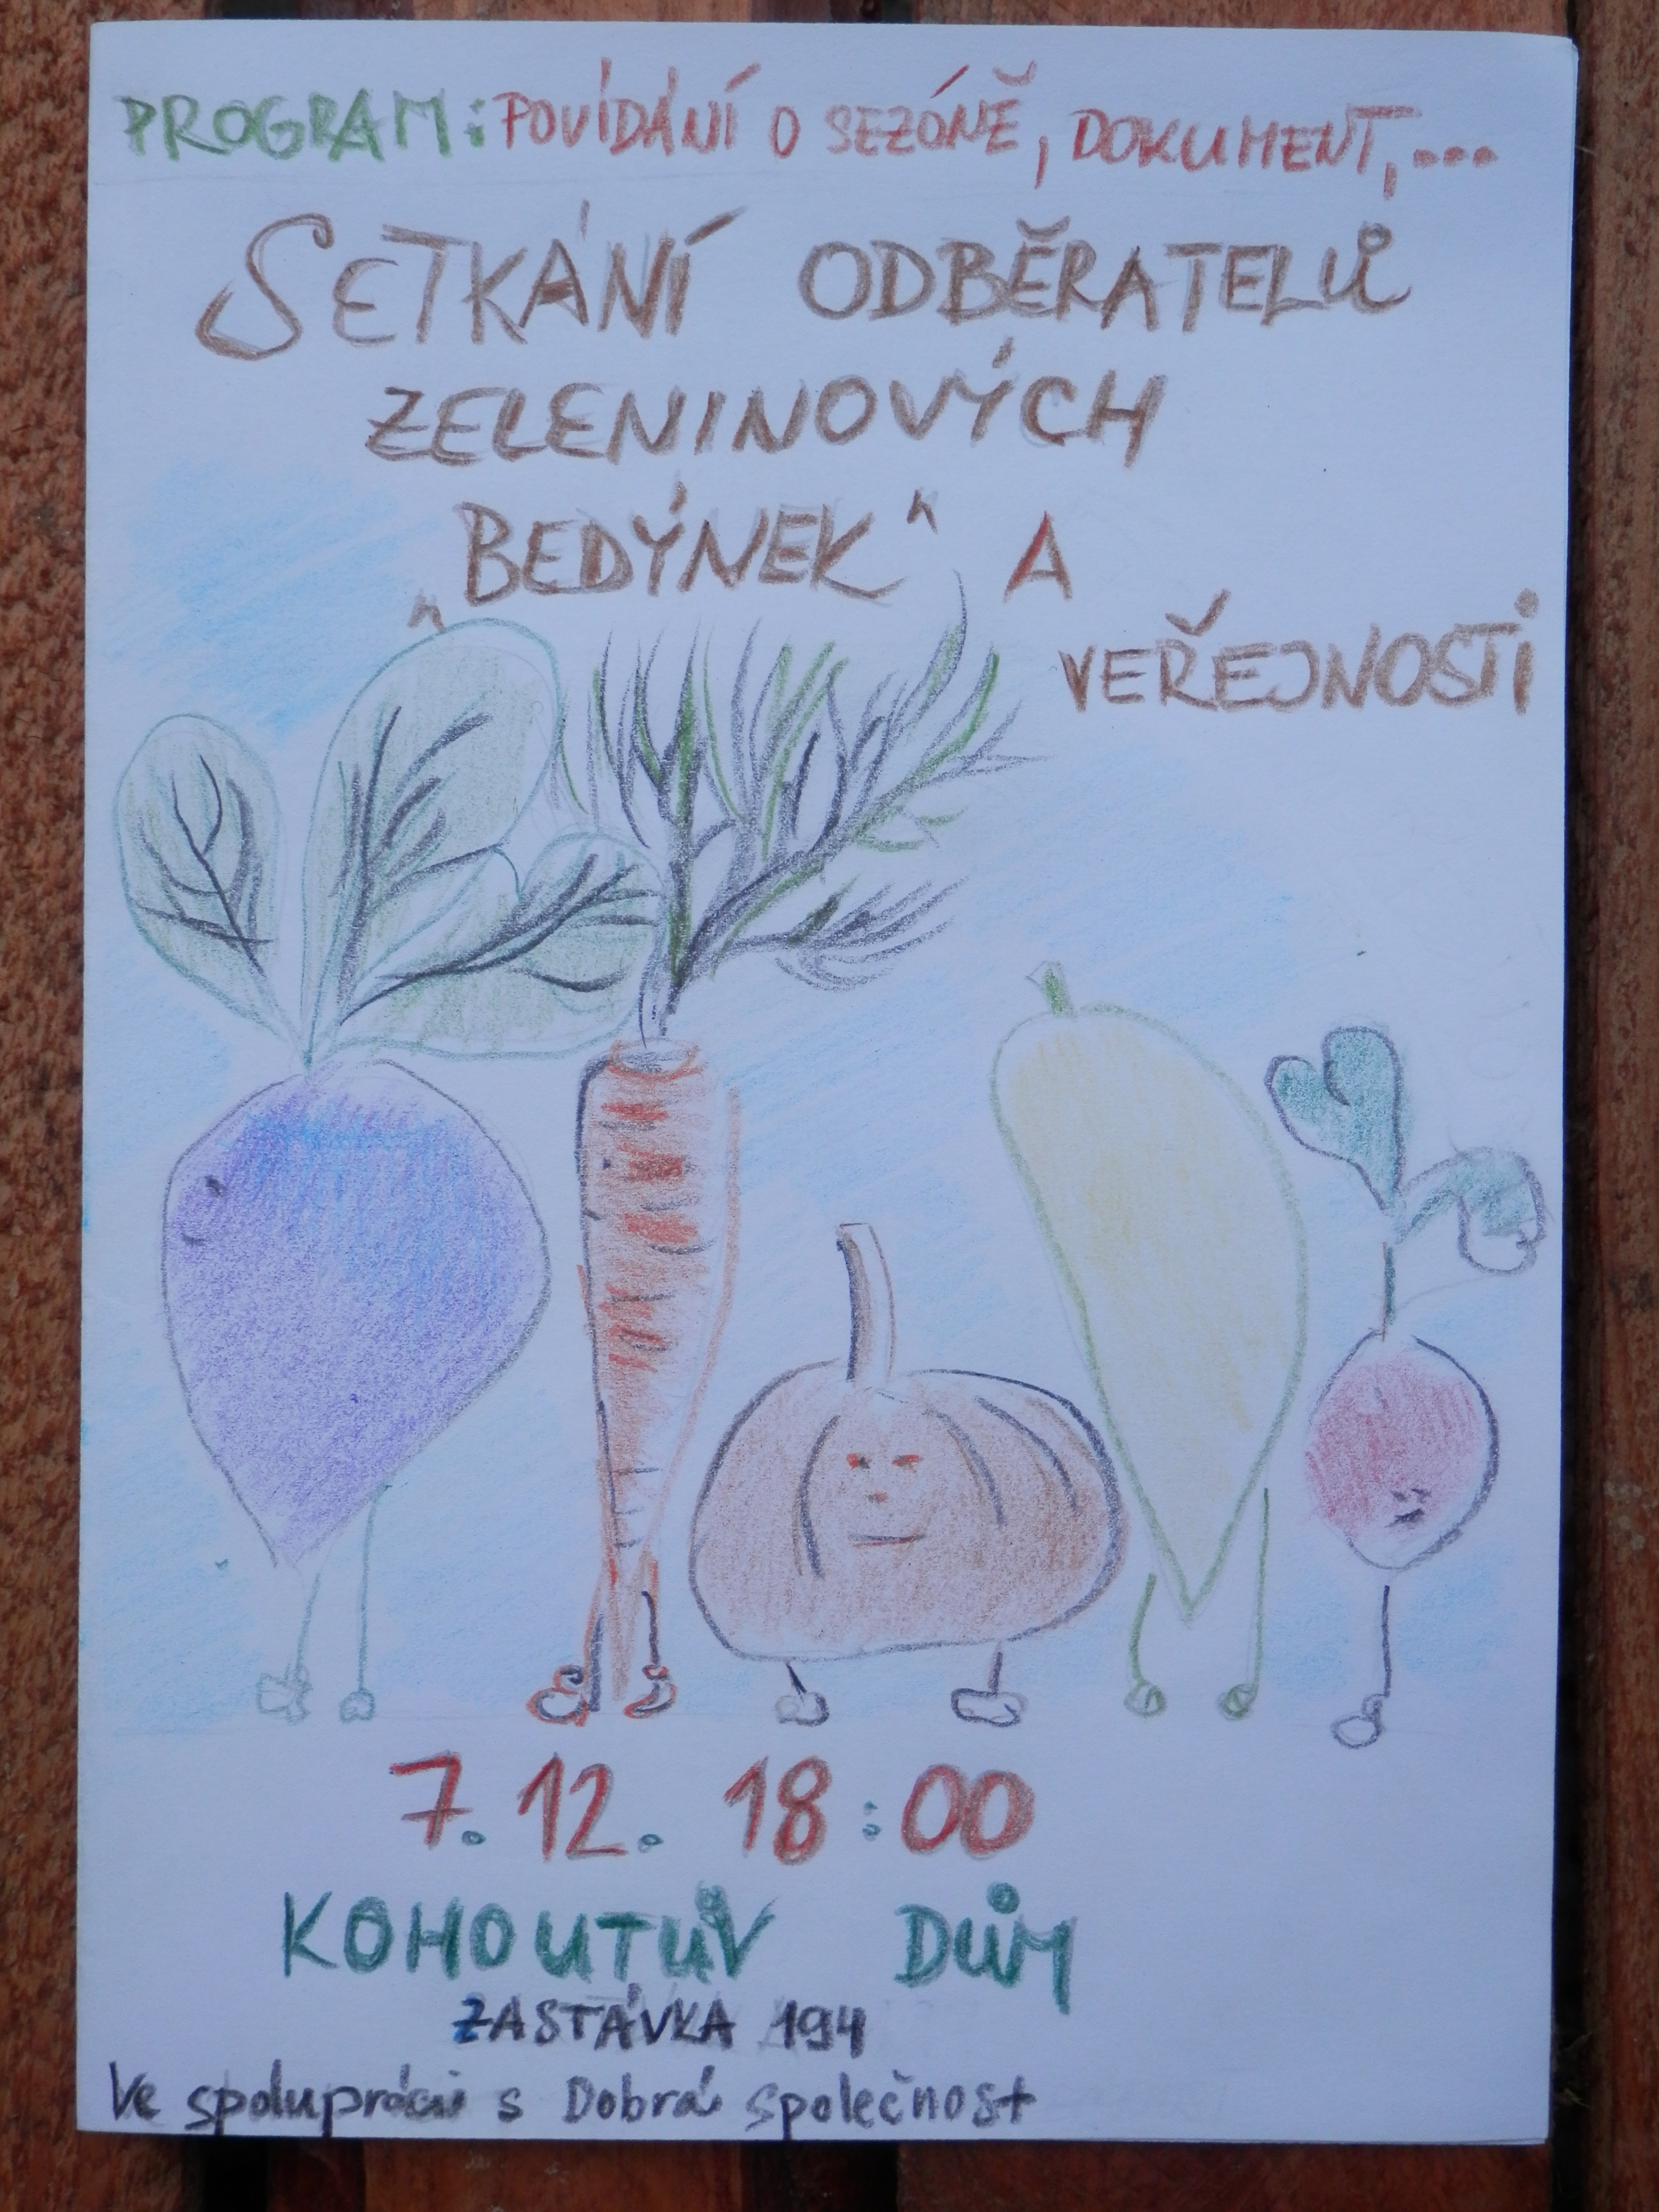 PROGRAM: POVÍDÁNÍ O SEZÓNĚ, DOKUMENT,...
SETKÁNÍ ODBĚRATELŮ
ZELENINOVÝCH
„BEDÝNEK“ A
VEŘEJNOSTI
7. 12. 18:00
KOHOUTŮV DŮM
ZASTÁVKA 194
Ve spolupráci s Dobrá společnost